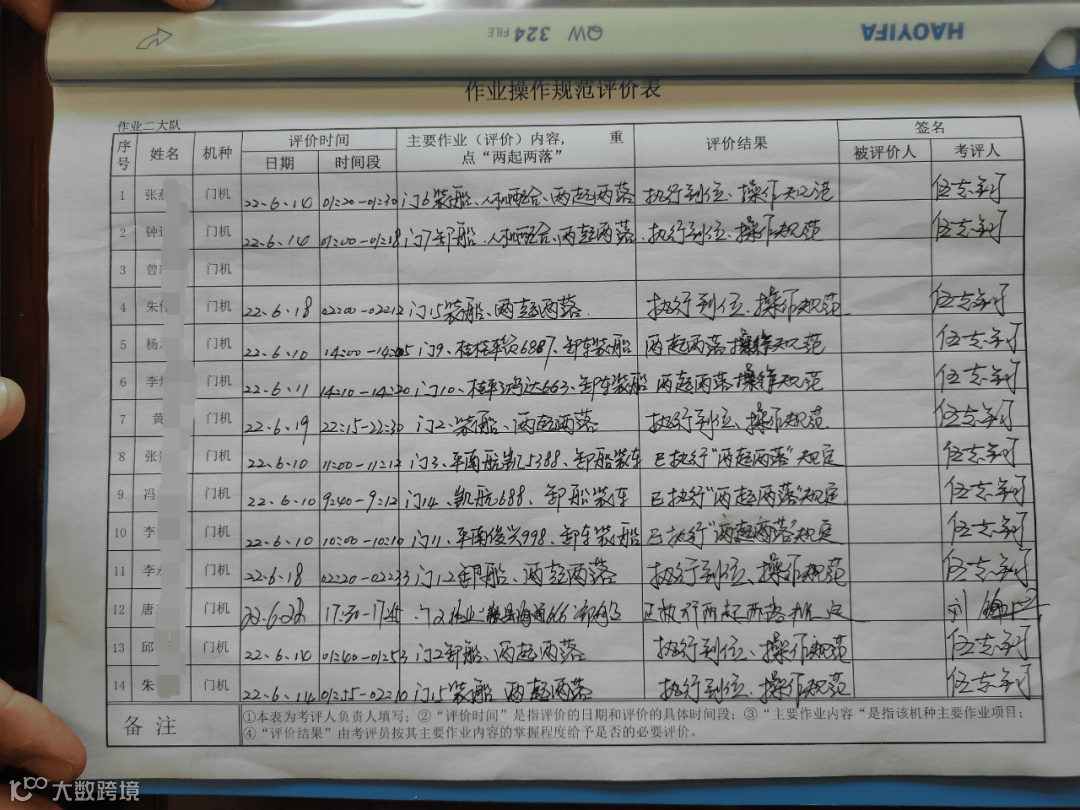 HAOYIFA
QW 324 FILE
作业操作规范评价表
作业二大队
序号 姓名 机种 评价时间 主要作业（评价）内容， 重点“两起两落” 评价结果 签名
日期 时间段 被评价人 考评人
1 张 门机 22.6.14 01:20-01:30 门6装船、人机配合、两起两落 执行到位、操作规范 伍志钊
2 钟 门机 22.6.14 01:00-01:18 门7卸船、人机配合、两起两落 执行到位、操作规范 伍志钊
3 曾 门机
4 朱 门机 22.6.18 02:00-02:12 门15装船、两起两落 执行到位、操作规范 伍志钊
5 杨 门机 22.6.10 14:00-14:05 门9、桂桂平 卸车装船 两起两落操作规范 伍志钊
6 李 门机 22.6.11 14:10-14:20 门10、桂平鸿达663、卸车装船 两起两落操作规范 伍志钊
7 黄 门机 22.6.19 22:15-22:30 门2、装船、两起两落 执行到位、操作规范 伍志钊
8 张 门机 22.6.10 11:00-11:12 门3、平南航凯5388、卸船装车 已执行“两起两落”规定 伍志钊
9 冯 门机 22.6.10 9:40-9:12 门14、凯航688、卸船装车 已执行“两起两落”规定 伍志钊
10 李 门机 22.6.10 10:00-10:10 门11、平南俊兴998、卸车装船 已执行“两起两落”规定 伍志钊
11 李 门机 22.6.18 02:20-02:33 门12卸船、两起两落 执行到位、操作规范 伍志钊
12 唐 门机 22.6.22 17:30-17:45 门2作业 已执行两起两落规定 刘
13 邱 门机 22.6.14 01:40-01:53 门2卸船、两起两落 执行到位、操作规范 伍志钊
14 朱 门机 22.6.14 01:55-02:10 门15装船、两起两落 执行到位、操作规范 伍志钊
备注 ①本表为考评人负责人填写；②“评价时间”是指评价的日期和评价的具体时间段；③“主要作业内容“是指该机种主要作业项目；
④“评价结果”由考评员按其主要作业内容的掌握程度给予是否的必要评价。
大数跨境